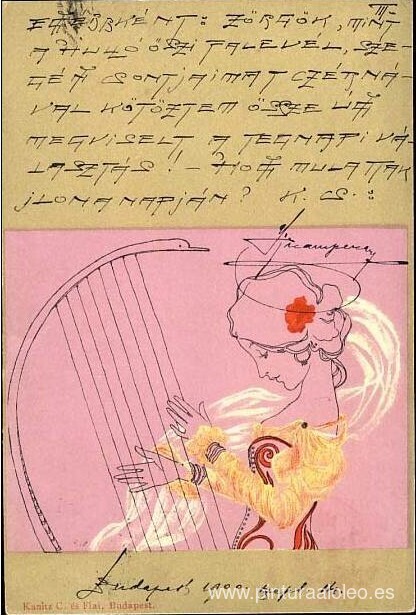 III.
EGYÉBKÉNT: ZÖRGÖK, MINT
A HULLÓ ŐSZI FALEVÉL, SZE-
GÉNY CSONTJAIMAT CZÉRNÁ-
VAL KÖTÖZTEM ÖSSZE ÚGY
MEGVISELT A TEGNAPI VÁ-
LASZTÁS! – HOGY MULATTAK
ILONA NAPJÁN? K. CS.:
Budapest 1900
Kanitz C. és Fiai, Budapest.
www.pinturaaloleo.es